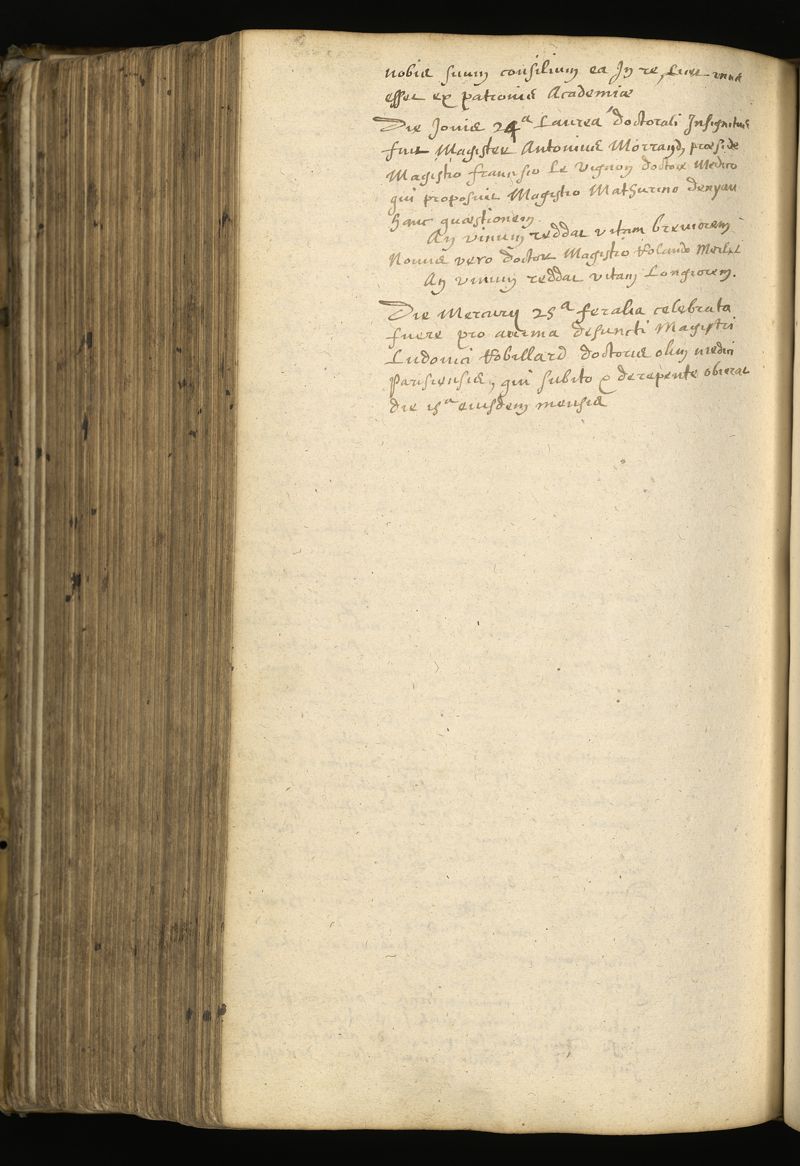 nobis suum consilium ea In re, cum unus
esset ex patronis Academiæ
Die Jovis 24ᵃ Laurea doctorali Insignitus
fuit Magister Antonius Morrand, præside
Magistro francisco Le Vignon doctore Medico
qui proposuit Magistro Mathurino denyau
hanc quæstionem.
An vinum reddat vitam breviorem
Novus vero doctor Magistro Rolando Merlet
An vinum reddat vitam Longiorem.
Die Mercurij 25ᵃ feralia celebrata
fuere pro anima defuncti Magistri
Ludovici Robillard doctoris olim medici
Parisiensis, qui subito & derepente obierat
die 15ᵃ eiusdem mensis